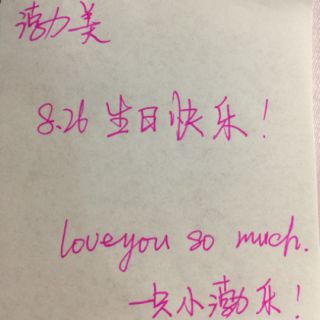 渤美
8.26 生日快乐!
love you so much.
一只小渤乐!